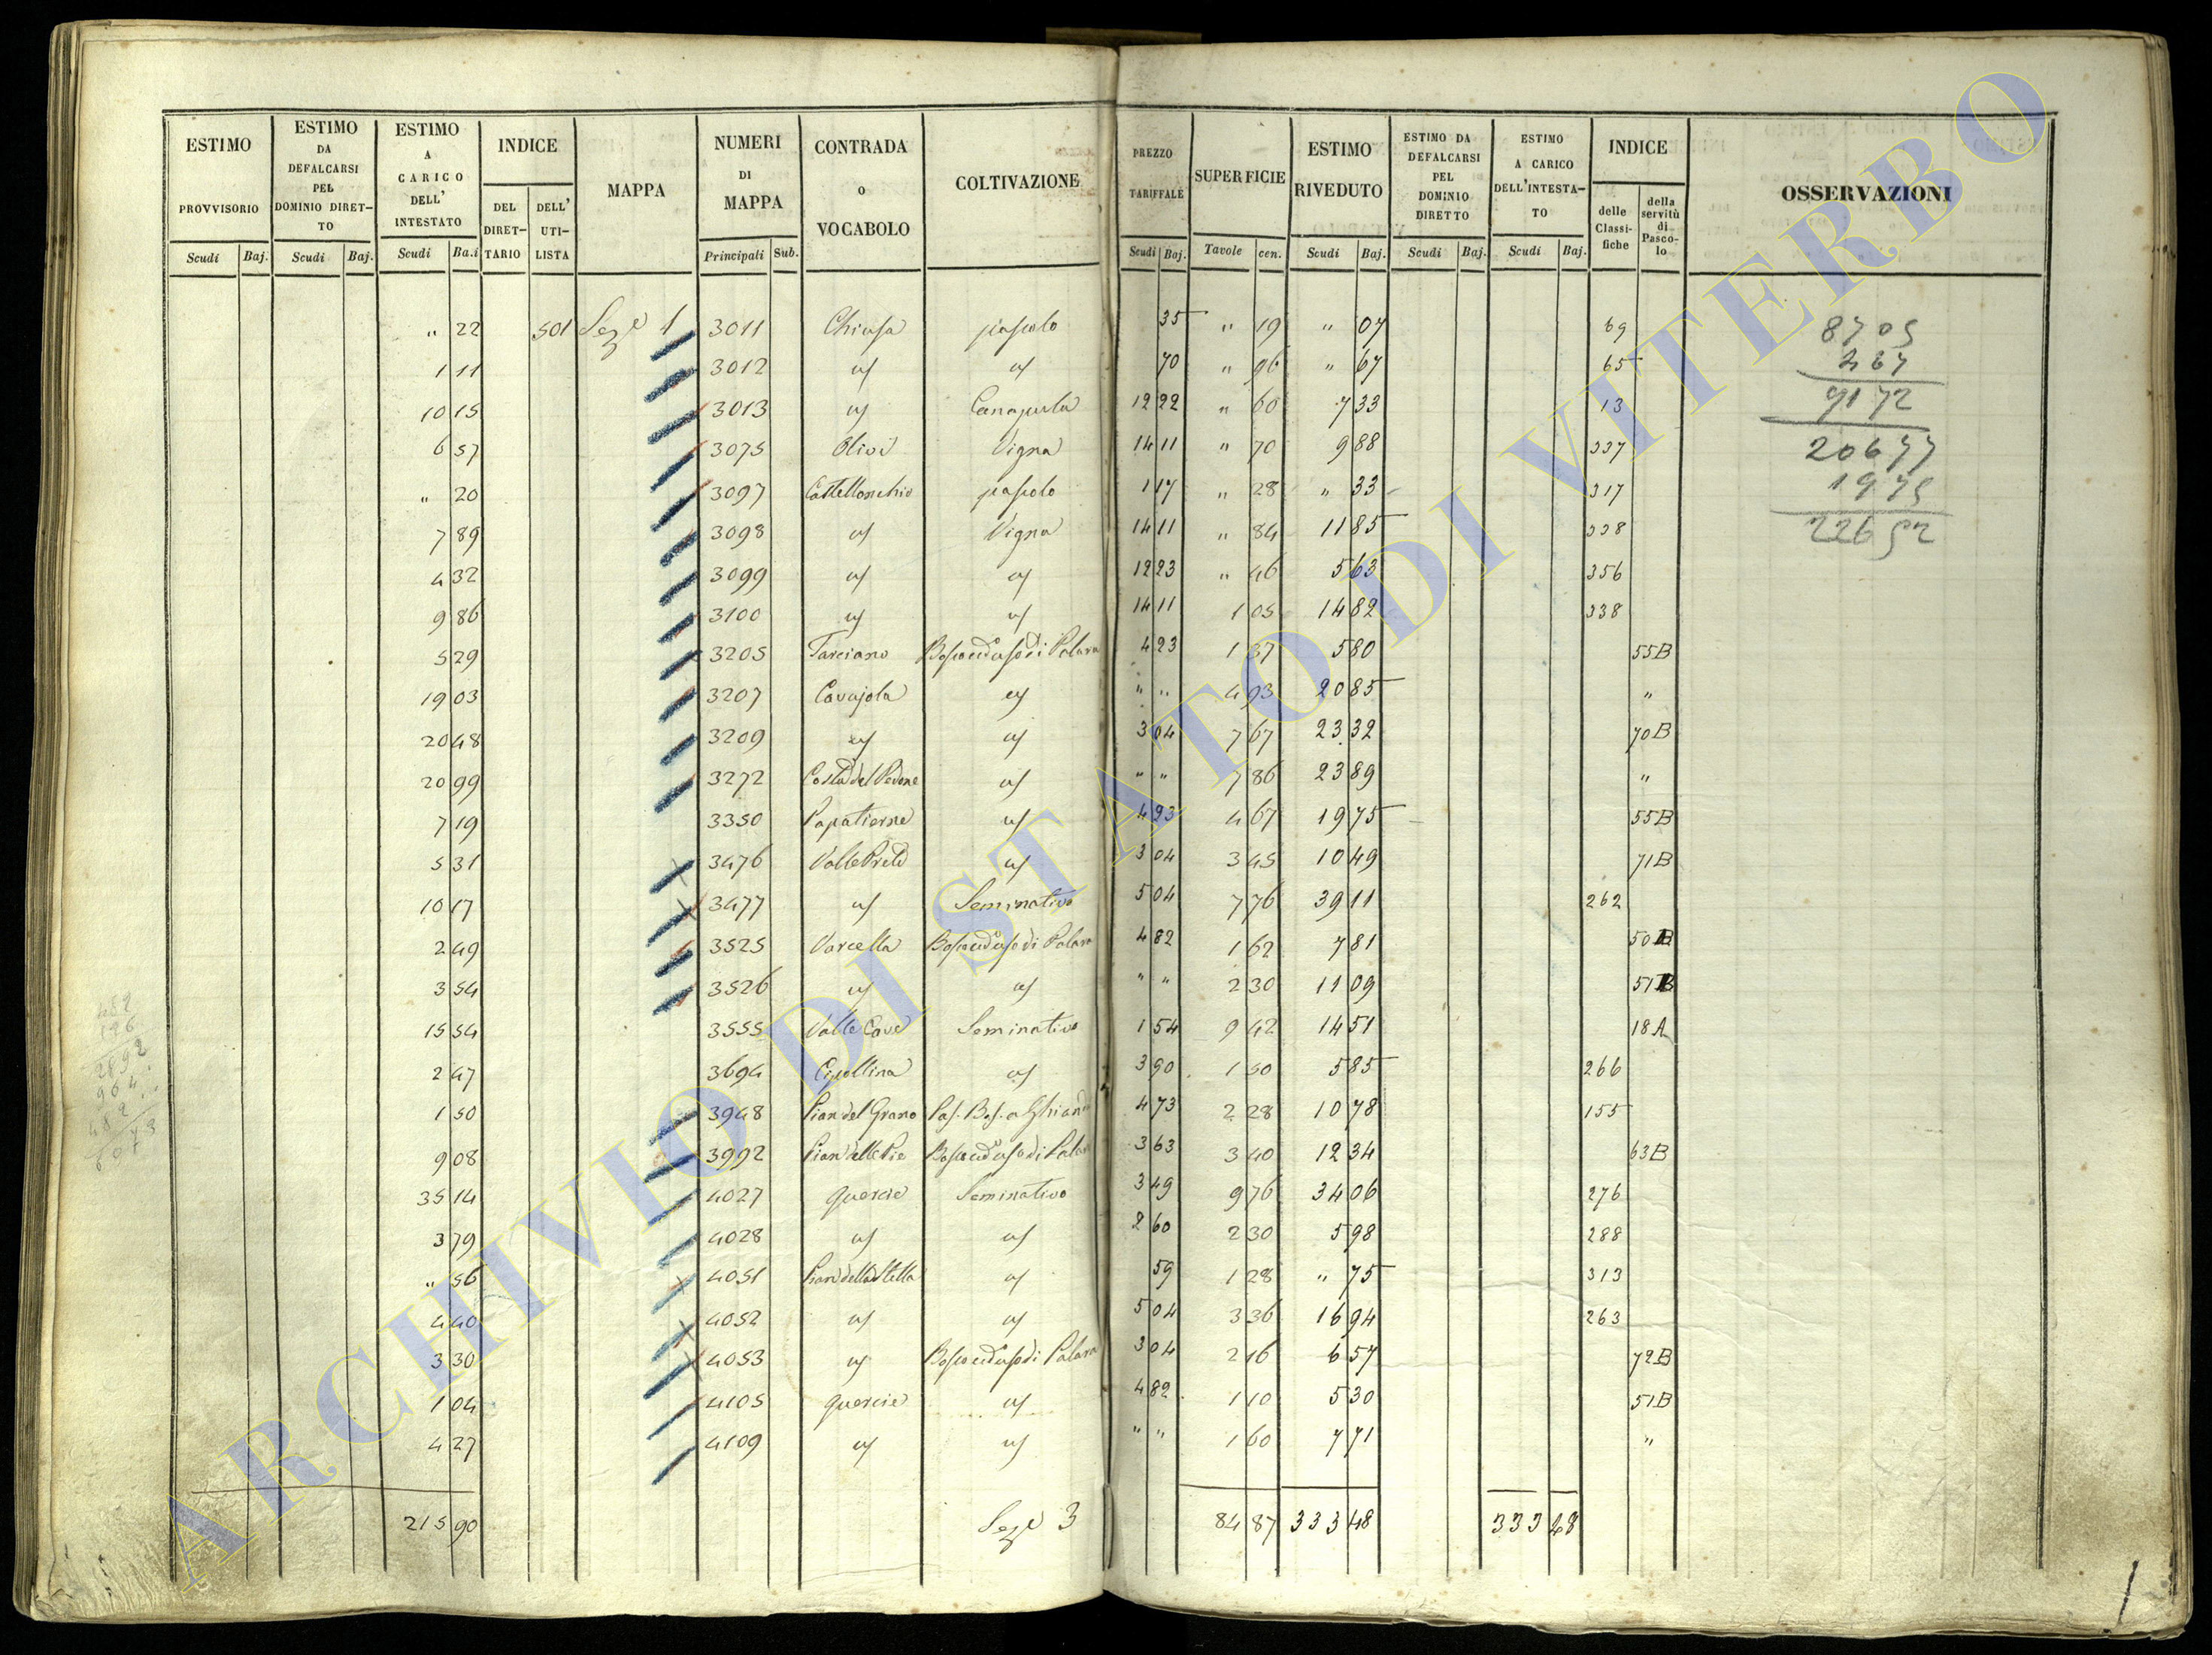 ESTIMO PROVVISORIO Scudi Baj.
ESTIMO DA DEFALCARSI PEL DOMINIO DIRETTO Scudi Baj.
ESTIMO A CARICO DELL' INTESTATO Scudi Ba.i
INDICE DEL DIRETTARIO DELL' UTILISTA
MAPPA
NUMERI DI MAPPA Principali Sub.
CONTRADA O VOCABOLO
COLTIVAZIONE
PREZZO TARIFFALE Scudi Baj.
SUPERFICIE Tavole cen.
ESTIMO RIVEDUTO Scudi Baj.
ESTIMO DA DEFALCARSI PEL DOMINIO DIRETTO Scudi Baj.
ESTIMO A CARICO DELL'INTESTATO Scudi Baj.
INDICE delle Classifiche della servitù di Pascolo
OSSERVAZIONI
" 22 501 Seze 1 3011 Chiusa pascolo 35 " 19 " 07 69
1 11 3012 " " 70 " 96 " 67 65
10 15 3013 " Canapula 12 22 " 60 7 33 13
6 57 3075 Olivi Vigna 14 11 " 70 9 88 337
" 20 3097 Castellonchio pascolo 1 17 " 28 " 33 317
7 89 3098 " Vigna 14 11 " 84 11 85 338
4 32 3099 " " 12 23 " 46 5 63 356
9 86 3100 " " 14 11 1 05 14 82 338
5 29 3205 Tarciano Bosco ced uso di Palara 4 23 1 37 5 80 55B
19 03 3207 Cavajola " " " 4 93 20 85 "
20 48 3209 " " 3 04 7 67 23 32 70B
20 99 3272 Costa del Pedone " " " 7 86 23 89 "
7 19 3350 Papatierne " 4 23 4 67 19 75 55B
5 31 3476 Valle Preti " 3 04 3 45 10 49 71B
10 17 3477 " Seminativo 5 04 7 76 39 11 262
2 49 3525 Varcella Bosco ced uso di Palara 4 82 1 62 7 81 50B
3 54 3526 " " " " 2 30 11 09 51B
15 54 3555 Valle Cave Seminativo 1 54 9 42 14 51 18A
2 47 3694 Cipollina " 3 90 1 50 5 85 266
1 50 3948 Pian del Grano Pas. Bos. a Ghianda 4 73 2 28 10 78 155
9 08 3992 Pian delle Pie Bosco ced uso di Palara 3 63 3 40 12 34 63B
35 14 4027 Quercie Seminativo 3 49 9 76 34 06 276
3 79 4028 " " 2 60 2 30 5 98 288
" 56 4051 Pian della Stella " 59 1 28 " 75 313
4 40 4052 " " 5 04 3 36 16 94 263
3 30 4053 " Bosco ced uso di Palara 3 04 2 16 6 57 72B
1 04 4105 Quercie " 4 82 1 10 5 30 51B
4 27 4109 " " " " 1 60 7 71 "
215 90 Seze 3 84 87 333 48 333 48
8705
467
9172
20677
1975
22652
482
196
2892
964
482
ARCHIVIO DI STATO DI VITERBO